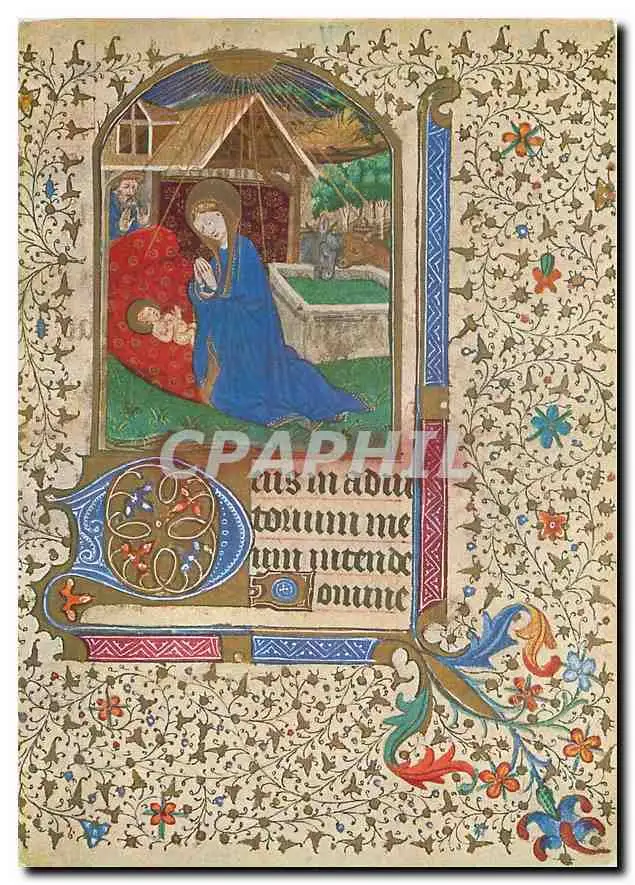 CPAPHIL
Deus in adiu
torium me
um intende
Domine